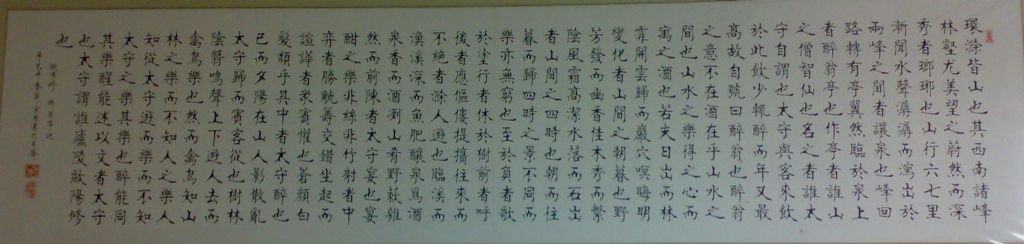 環滁皆山也其西南諸峰
林壑尤美望之蔚然而深
秀者瑯琊也山行六七里
漸聞水聲潺潺而瀉出於
兩峰之間者讓泉也峰回
路轉有亭翼然臨於泉上
者醉翁亭也作亭者誰山
之僧智仙也名之者誰太
守自謂也太守與客來飲
於此飲少輒醉而年又最
高故自號曰醉翁也醉翁
之意不在酒在乎山水之
間也山水之樂得之心而
寓之酒也若夫日出而林
霏開雲歸而巖穴暝晦明
變化者山間之朝暮也野
芳發而幽香佳木秀而繁
陰風霜高潔水落而石出
者山間之四時也朝而往
暮而歸四時之景不同而
樂亦無窮也至於負者歌
於塗行者休於樹前者呼
後者應傴僂提攜往來而
不絕者滁人遊也臨溪而
漁溪深而魚肥釀泉為酒
泉香而酒洌山肴野蔌雜
然而前陳者太守宴也宴
酣之樂非絲非竹射者中
弈者勝觥籌交錯坐起而
諠譁者衆賓懽也蒼顏白
髮頹乎其中者太守醉也
已而夕陽在山人影散亂
太守歸而賓客從也樹林
陰翳鳴聲上下遊人去而
禽鳥樂也然而禽鳥知山
林之樂而不知人之樂人
知從太守遊而樂而不知
太守之樂其樂也醉能同
其樂醒能述以文者太守
也太守謂誰廬陵歐陽修
也